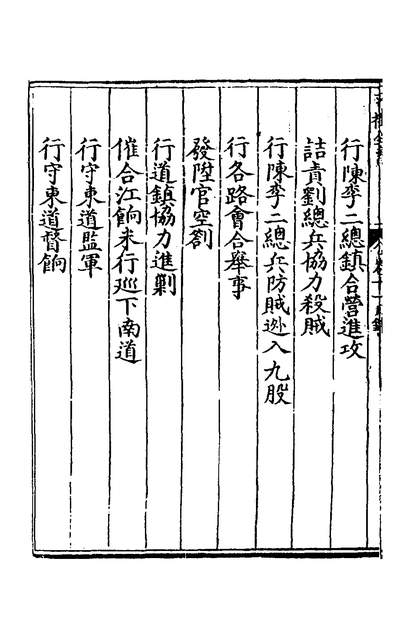 行陳李二總鎮合營進攻
詰責劉總兵協力殺賊
行陳李二總兵防賊逊入九股
行各路會合舉事
發陞官空劄
行道鎮協力進剿
催合江餉米行巡下南道
行守東道監軍
行守東道督餉